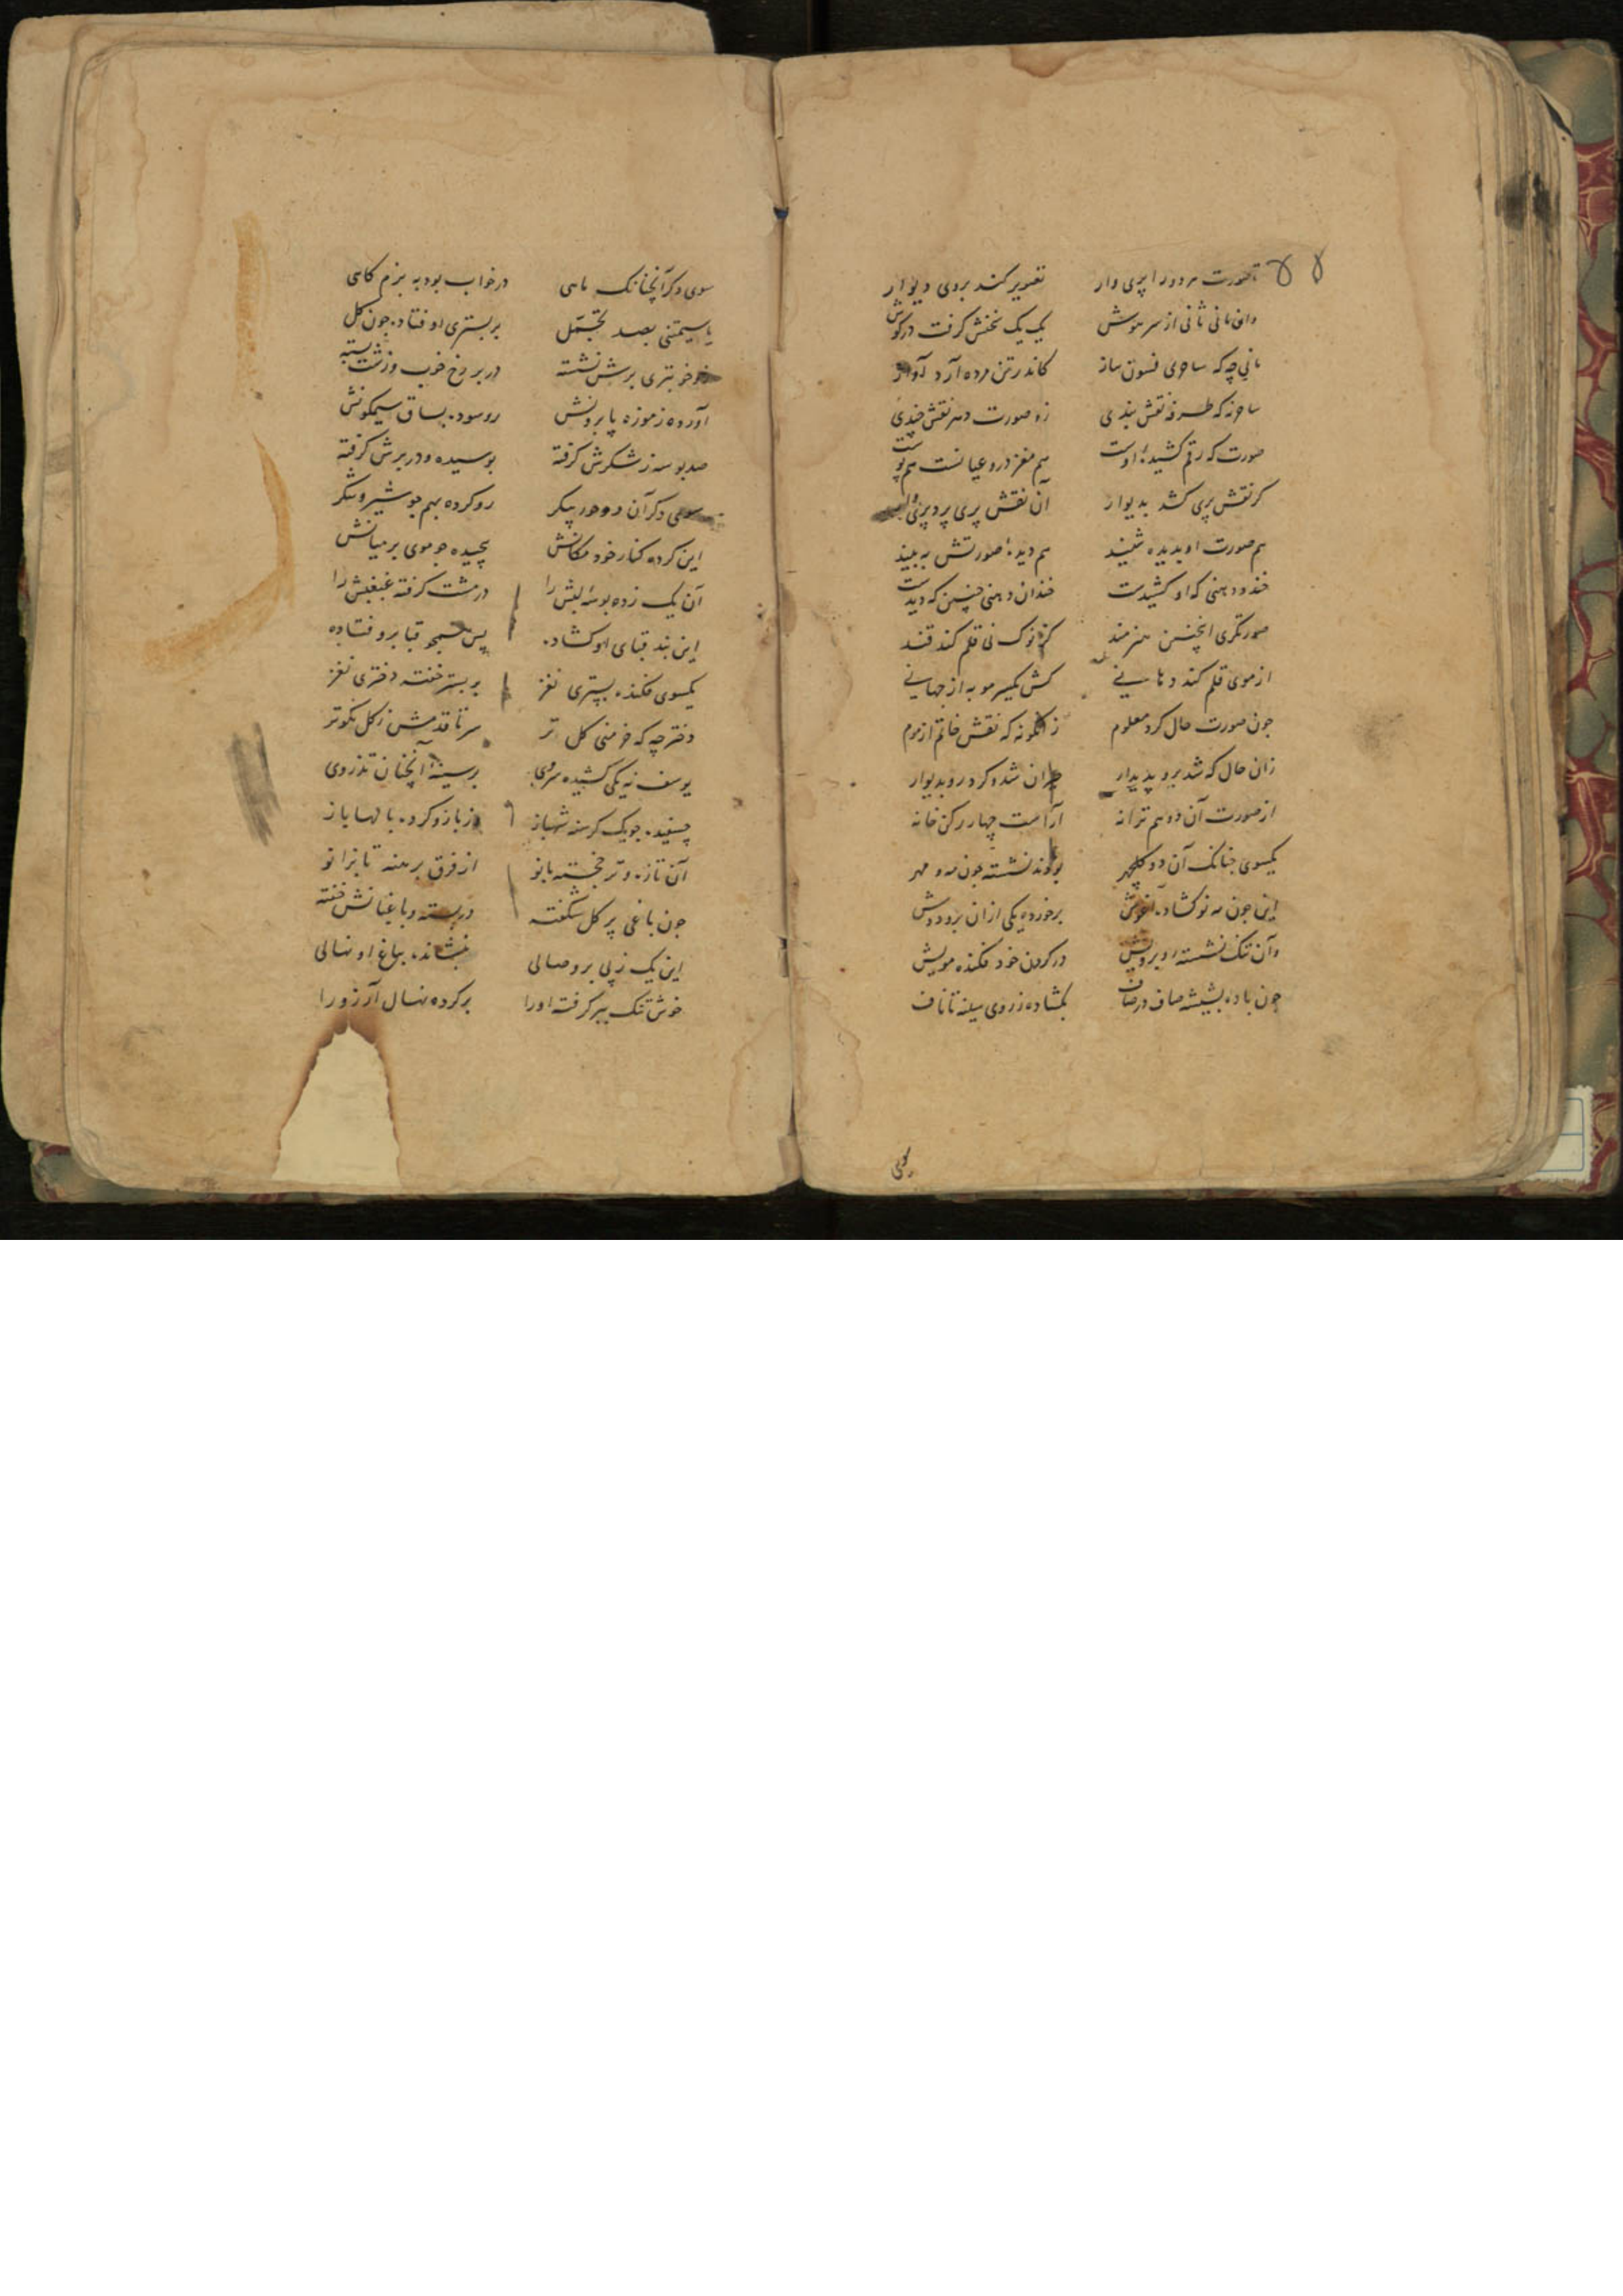 صورت هر دو را پری وار تصویر کند بروی دیوار
وان مانی ثانی از سر هوش یک یک سخنش گرفت در گوش
مانی چه که ساحری فسون ساز کاندر تن مرده آرد آواز
ساحر نه که طرفه نقش بندی زو صورت دهر نقش چندی
صورت که رقم کشیدهٔ اوست هم مغز درو عیانست هم پوست
گر نقش پری کشد بدیوار آن نقش پری پرد پری وار
هم صورت او بدیده شیند هم دیدهٔ صورتش به بیند
خندد دهنی که او کشیدست خندان دهنی چنین که دیدست
صورتگری اینچنین هنرمند کز نوک نی قلم کند قند
از موی قلم کند دهانی کش یکسر مو به از جهانی
چون صورت حال کرد معلوم زانگونه که نقش خاتم از موم
زان حال که شد برو پدیدار حیران شد و کرد رو بدیوار
از صورت آن دو هم ترانه آراست چهار رکن خانه
یکسوی چنانک آن دو گلچهر بودند نشسته چون مه و مهر
این چون مه نو گشاده آغوش برخورده یکی ازان برو دوش
وآن تنک نشسته روبرویش در گردن خود فکنده مویش
چون باده بشیشه صاف در صاف بگشاده ز روی سینه تا ناف
سوی
سوی دگر آنچنانک ماهی در خواب بود به بزم گاهی
یا سیمتنی بصد تجمل بر بستری اوفتاده چون گل
خوبتری برش نشسته در بر رخ خوب وزشت بسته
آورده ز موزه پا برونش رو سوده بساق سیمگونش
صد بوسه ز شکرش گرفته بوسیده و در برش گرفته
سوی دگر آن دو حور پیکر رو کرده بهم چو شیر و شکر
این کرده کنار خود مکانش پیچیده چو موی بر میانش
آن یک زده بوسه لبش را در مشت گرفته غبغبش را
این بند قبای او گشاده پس همچو قبا برو فتاده
یکسوی فکنده بستری نغز بر بستر خفته دختری نغز
دختر چه که خرمنی گل تر سر تا قدمش ز گل نکوتر
یوسف نه یکی کشیده سروی بر سینهٔ آنچنان تذروی
چسپیده چو یک گرسنه شهباز وز بازو کرده بالها باز
آن تازه و تر خجسته بانو از فرق برهنه تا بزانو
چون باغی پر گل شگفته در بسته و باغبانش خفته
این یک ز پی بر وصالی بنشانده بباغ او نهالی
خوش تنک ببر گرفته او را بر کرده نهال آرزو را